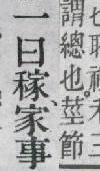 謂總也莖節
一曰稼家事